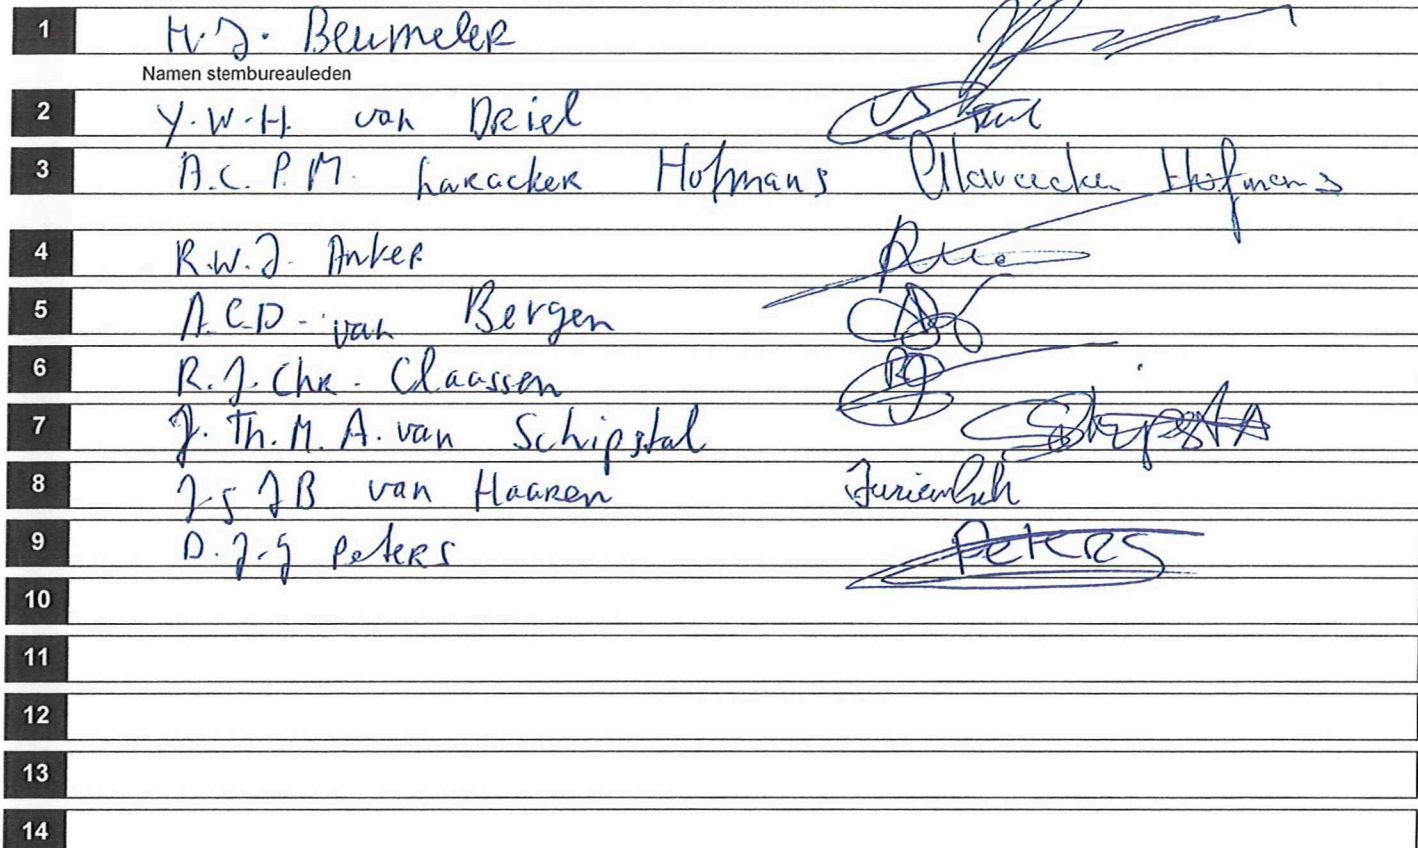 1 H.J. Beumeler
Namen stembureauleden
2 Y.W.H. van Driel
3 A.C.P.M. Laracker Hofmans Hofmans
4 R.W.J. Anker
5 A.C.D. van Bergen
6 R.J.Chr. Claassen
7 J.Th.M.A. van Schipstal
8 van Haaren
9 D.J.G Peters Peters
10
11
12
13
14